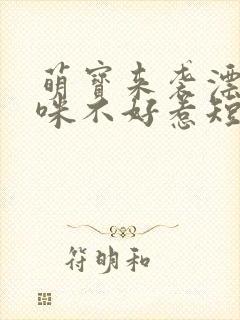 萌宝来袭漂
咪不好惹短
符明和